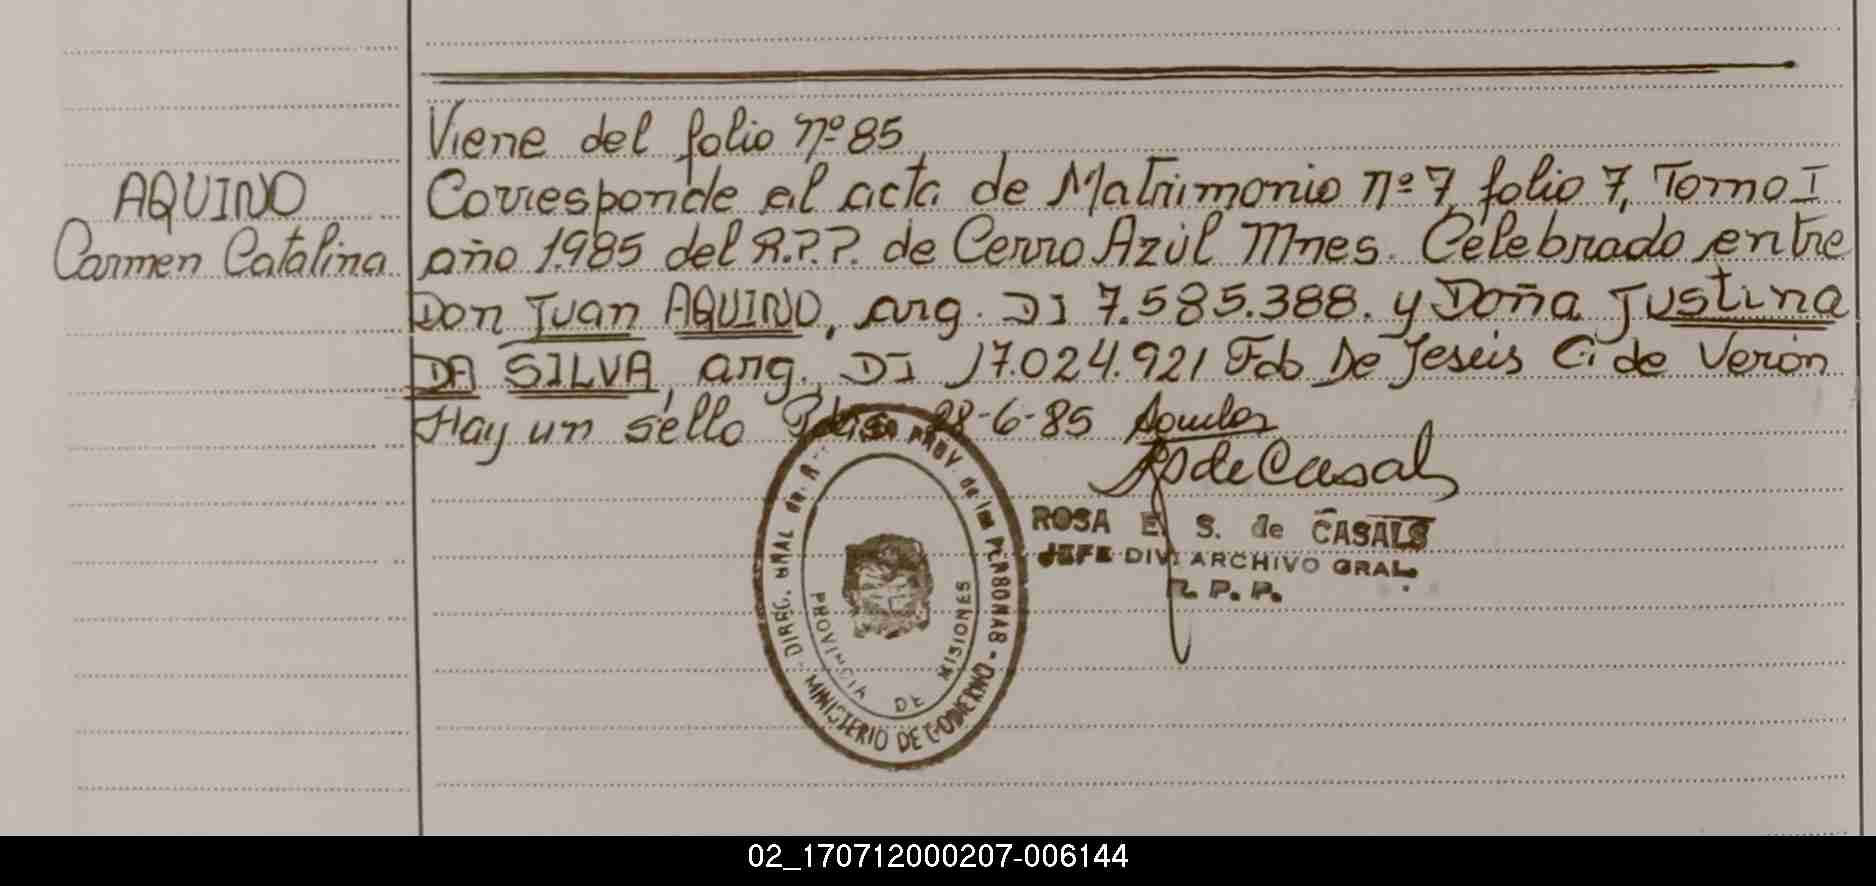 Viene del folio Nº 85
AQUINO
Carmen Catalina
Corresponde al acta de Matrimonio Nº 7 folio 7, Tomo I
año 1985 del R.P.P. de Cerro Azúl Mnes. Celebrado entre
Don Juan AQUINO, arg. DI 7.585.388. y Doña Justina
DA SILVA, arg., DI 17.024.921 Fdo De Jesús C. de Verón
Hay un sello Pdas 28-6-85
de Casals
ROSA E. S. de CASALS
JEFE DIV. ARCHIVO GRAL.
R. P. P.
DIREC. GRAL de PROV. de las PERSONAS - MINISTERIO DE GOBIERNO -
PROVINCIA DE MISIONES
02_170712000207-006144